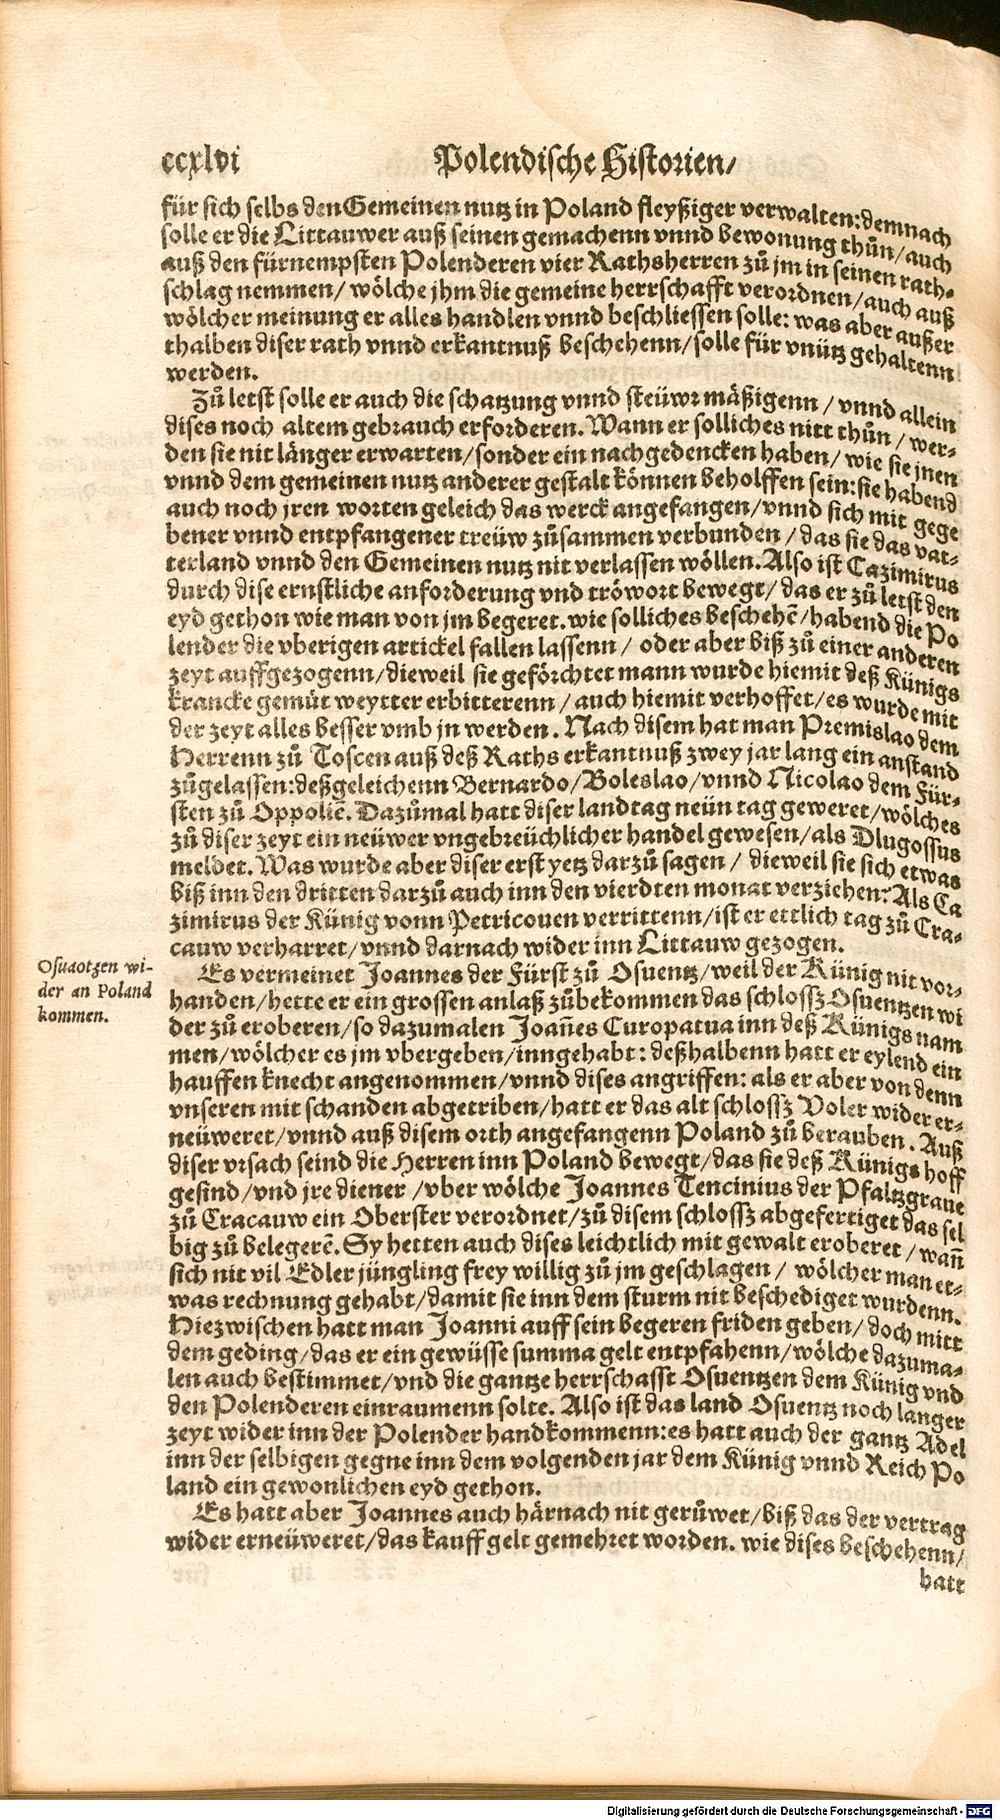 ccxlvi Polendische Historien/
für sich selbs den Gemeinen nutz in Poland fleyßiger verwalten: demnach
solle er die Littauwer auß seinen gemachenn vnnd bewonung thůn/ auch
auß den fürnempsten Polenderen vier Rathsherren zů jm in seinen rath-
schlag nemmen/ wölche jhm die gemeine herrschafft verordnen/ auch auß
wölcher meinung er alles handlen vnnd beschliessen solle: was aber außer
thalben diser rath vnnd erkantnuß beschehenn/ solle für vnütz gehaltenn
werden.
Zů letst solle er auch die schatzung vnnd steüwr mäßigenn/ vnnd allein
dises noch altem gebrauch erforderen. Wann er solliches nitt thůn/ wer-
den sie nit länger erwarten/ sonder ein nachgedencken haben/ wie sie jnen
vnnd dem gemeinen nutz anderer gestalt können beholffen sein: sie habend
auch noch jren worten geleich das werck angefangen/ vnnd sich mit gege
bener vnnd entpfangener treüw zůsammen verbunden/ das sie das vat-
terland vnnd den Gemeinen nutz nit verlassen wöllen. Also ist Cazimirus
durch dise ernstliche anforderung vnd tröwort bewegt/ das er zů letst den
eyd gethon wie man von jm begeret. wie solliches beschehē/ habend die Po
lender die vberigen artickel fallen lassenn/ oder aber biß zů einer anderen
zeyt auffgezogenn/ dieweil sie geförchtet mann wurde hiemit deß Künigs
krancke gemüt weytter erbitterenn/ auch hiemit verhoffet/ es wurde mit
der zeyt alles besser vmb jn werden. Nach disem hat man Premislao dem
Herrenn zů Toscen auß deß Raths erkantnuß zwey jar lang ein anstand
zůgelassen: deßgeleichenn Bernardo/ Boleslao/ vnnd Nicolao dem Für-
sten zů Oppoliē. Dazůmal hatt diser landtag neün tag geweret/ wölches
zů diser zeyt ein neüwer vngebreüchlicher handel gewesen/ als Dlugossus
meldet. Was wurde aber diser erst yetz darzů sagen/ dieweil sie sich etwas
biß inn den dritten darzů auch inn den vierdten monat verziehen? Als Ca
zimirus der Künig vonn Petricouen verrittenn/ ist er ettlich tag zů Cra-
cauw verharret/ vnnd darnach wider inn Littauw gezogen.
Osuaotzen wi-
der an Poland
kommen.
Es vermeinet Joannes der Fürst zů Osuentz/ weil der Künig nit vor-
handen/ hette er ein grossen anlaß zůbekommen das schlossz Osuentzen wi
der zů eroberen/ so dazumalen Joañes Curopatua inn deß Künigs nam
men/ wölcher es jm vbergeben/ inngehabt: deßhalbenn hatt er eylend ein
hauffen knecht angenommen/ vnnd dises angriffen: als er aber von denn
vnseren mit schanden abgetriben/ hatt er das alt schlossz Voler wider er-
neüweret/ vnnd auß disem orth angefangenn Poland zů berauben. Auß
diser vrsach seind die Herren inn Poland bewegt/ das sie deß Künigs hoff
gesind/ vnd jre diener/ vber wölche Joannes Tencinius der Pfaltzgraue
zů Cracauw ein Oberster verordnet/ zů disem schlossz abgefertiget das sel
big zů belegerē. Sy hetten auch dises leichtlich mit gewalt eroberet/ wañ
sich nit vil Edler jüngling frey willig zů jm geschlagen/ wölcher man et-
was rechnung gehabt/ damit sie inn dem sturm nit beschediget wurdenn.
Hiezwischen hatt man Joanni auff sein begeren friden geben/ doch mitt
dem geding/ das er ein gewüsse summa gelt entpfahenn/ wölche dazuma-
len auch bestimmet/ vnd die gantze herrschafft Osuentzen dem Künig vnd
den Polenderen einraumenn solte. Also ist das land Osuentz noch langer
zeyt wider inn der Polender hand kommenn: es hatt auch der gantz Adel
inn der selbigen gegne inn dem volgenden jar dem Künig vnnd Reich Po
land ein gewonlichen eyd gethon.
Es hatt aber Joannes auch härnach nit gerůwet/ biß das der vertrag
wider erneüweret/ das kauff gelt gemehret worden. wie dises beschehenn/
hatt
Digitalisierung gefördert durch die Deutsche Forschungsgemeinschaft - DFG